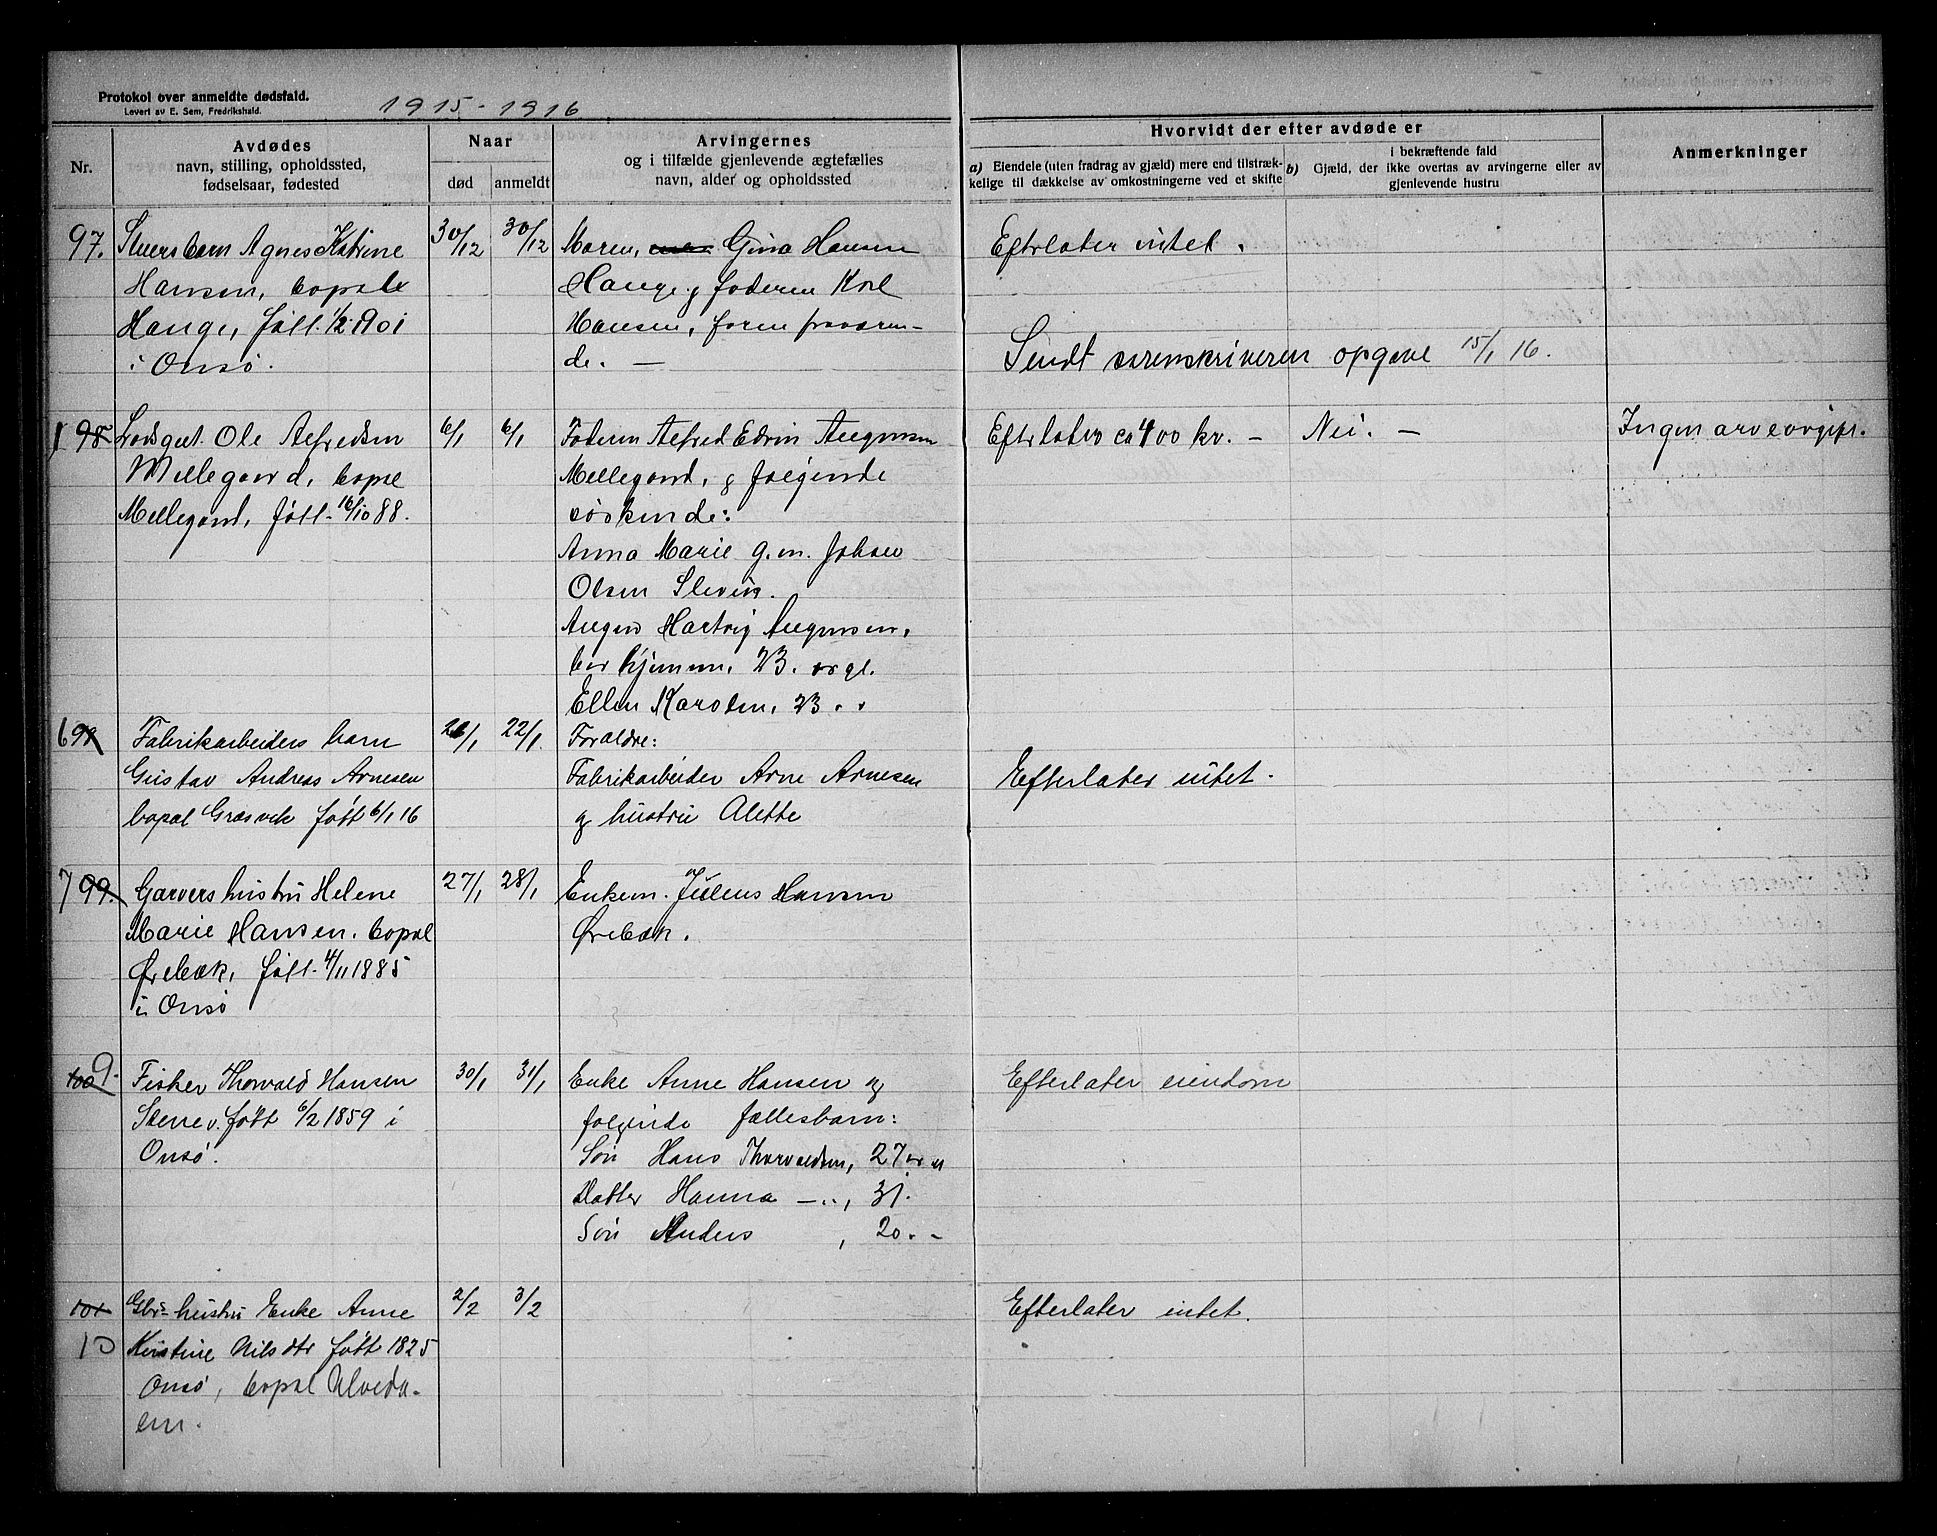 Protokol over anmeldte dødsfald.
Levert av E. Sem, Fredrikshald.
1915-1916
Nr.
Avdødes
navn, stilling, opholdssted,
fødselsaar, fødested
Naar
død
anmeldt
Arvingernes
og i tilfælde gjenlevende ægtefælles
navn, alder og opholdssted
Hvorvidt der efter avdøde er
a) Eiendele (uten fradrag av gjæld) mere end tilstræk-
kelige til dækkelse av omkostningerne ved et skifte
i bekræftende fald
b) Gjæld, der ikke overtas av arvingerne eller av
gjenlevende hustru
Anmerkninger
97. barn Agnes Katrine 30/12 30/12 Moren, Gina Hansen Efterlater intet.
Hansen, bopæl Hauge, g faderen Karl
Hauge, født 1/2 1901 Hansen, faren fraværen-
i Onsø. de. —
Sendt sorenskriveren opgave 15/1 16.
1 98 Lodsgut Ole Alfredsen 6/1 6/1 Faderen Alfred Edvin Augensen Efterlater ca 400 kr. - Nei. - Ingen arveavgift.
Mellegaard, bopæl Mellegaard, g følgende
Mellegaard, født 16/10 88. søskende:
Anna Marie g.m. Johan
Olsen Slevik.
Hartvig Augensen,
bor hjemme, 23. gl.
Ellen Karoline, 23 . .
6 98 Fabrikarbeiders barn 21/1 22/1. Forældre:
Gustav Andreas Arnesen Fabrikarbeider Arne Arnesen Efterlater intet.
bopæl Græsvik født 6/1 16 og hustru Alette
7 99. Garvers hustru Helene 27/1 28/1 Enkem. Julius Hansen
Marie Hansen. bopæl Ørebæk.
Ørebæk, født 4/11 1885
i Onsø
100 9. Fisker Thorvald Hansen 30/1 31/1 Enke Anne Hansen og Efterlater eiendom
født 6/2 1859 i følgende fællesbarn:
Onsø. Søn Hans Thorvaldsen, 27 aar
Datter Hanna —.., 31.
Søn Anders , 20. -
101 Gbr. hustru Enke Anne 2/2 3/2 Efterlater intet.
10 Kristine Nilsdtr født 1825
Onsø, bopæl Alveda-
len.